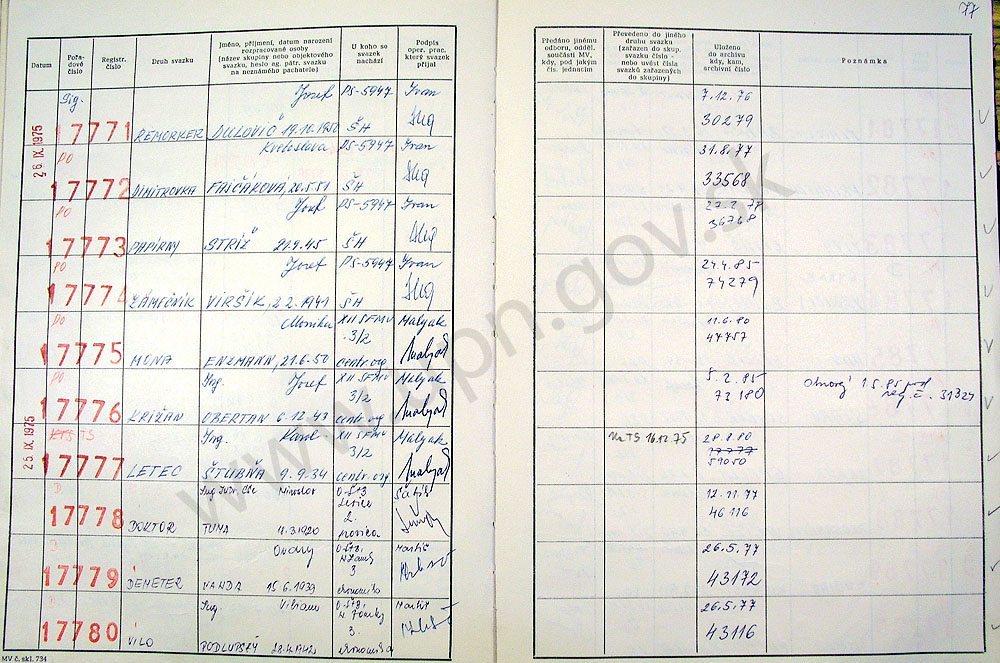 77
Datum
Pořadové číslo
Registr. číslo
Druh svazku
Jméno, příjmení, datum narození
rozpracované osoby
(název skupiny nebo objektového
svazku, heslo ag. pátr. svazku
na neznámého pachatele)
U koho se
svazek
nachází
Podpis
oper. prac.
který svazek
přijal
Předáno jinému
odboru, odděl.
součásti MV,
kdy, pod jakým
čís. jednacím
Převedeno do jiného
druhu svazku
(zařazen do skup.
svazku číslo -
nebo uvést čísla
svazků zařazených
do skupiny)
Uloženo
do archivu
kdy, kam,
archivní číslo
Poznámka
26. IX. 1975
Josef PS-5947 Ivan 7.12.76
17771 REMORKER DULOVIČ 19.10.1950 ŠH 30279
PO Kvetoslava PS-5947 Ivan 31.8.77
17772 DIMITROVKA FAJČÁKOVÁ, ŠH 33568
PO Josef PS-5947 Ivan
17773 PAPÍRNY STRÍŽ 21.9.45 ŠH 36768
PO Josef PS-5947 Ivan 24.4.85
17774 ZÁMEČNÍK VIRŠÍK, 2.2.1941 ŠH 74279
PO Monika XII SFMV Malyak 11.6.80
3/2
17775 MONA ENZMANN, 21.6.50 centr. org 47757
PO Ing. Josef XII SFMV Malyak 5.2.85
3/2
17776 KRIŽAN OBERTAN 6.12.43 centr. org 73180 1.5.85 pod
reg. č. 31324
25. IX. 1975
TS Ing. Karol XII SFMV Malyak Na TS 16.12.75 28.8.80
3/2
17777 LETEC ŠTUBŇA 9.9.34 centr. org 59050
D Ing. JUDr. CSc Miroslav Levice 12.11.77
2.
17778 DOKTOR TUMA 4.3.1920 46116
D Ondrej Martiš 26.5.77
3
17779 DEMETER VANDA 15.6.1939 ekonomika 43172
D Ing. Viliam Martiš 26.5.77
3.
17780 VILO PODLUPSKÝ 28.4.1942 ekonomika 43116
MV č. skl. 734
www.upn.gov.sk